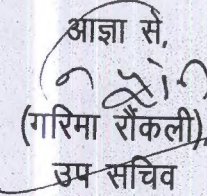 आज्ञा से,
(गरिमा रौंकली)
उप सचिव